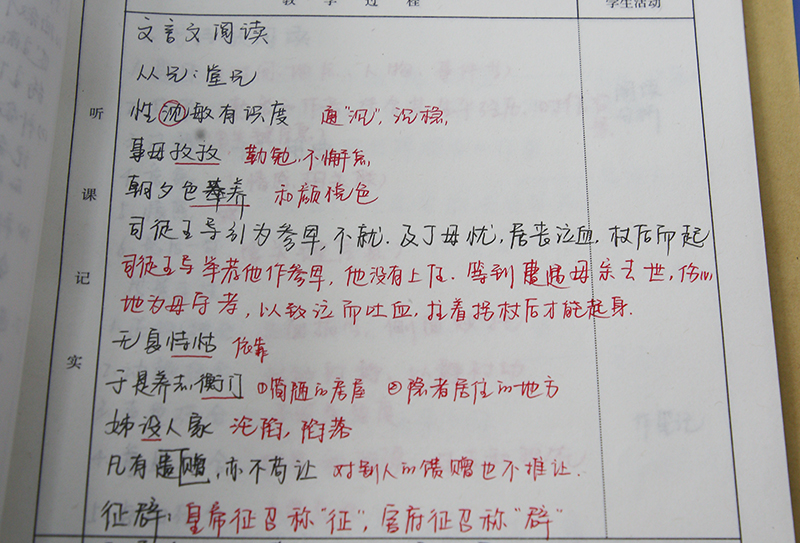 教 学 过 程 学生活动
听课记实
文言文阅读
从兄：堂兄
性沈敏有识度 通"沉"，沉稳，
事母孜孜 勤勉，不懈怠，
朝夕色养 和颜悦色
司徒王导引为参军，不就．及丁母忧，居丧泣血，杖后而起
司徒王导举荐他作参军，他没有上任．等到遭遇母亲去世，伤心
地为母守孝，以致泣而吐血，拄着拐杖后才能起身．
无复恃怙 依靠
于是养志衡门 ①简陋的房屋 ②隐者居住的地方
姊没人家 沦陷，陷落
凡有赠，亦不苟让 对别人的馈赠也不推让．
征辟：皇帝征召称"征"，官府征召称"辟"